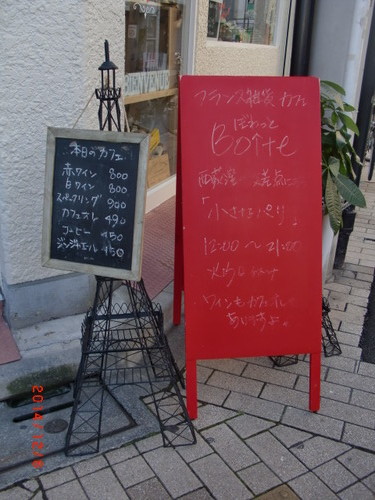 BIENVENUE
本日のカフェ
赤ワイン 800
白ワイン 800
スパークリング 900
カフェオレ 490
コーヒー 450
ジンジャエール 450
フランス雑貨 カフェ
ぽわっと
Boîte
西荻窪
「小さなパリ」
12:00～21:00
ワインもカフェオレも
ありますよ。